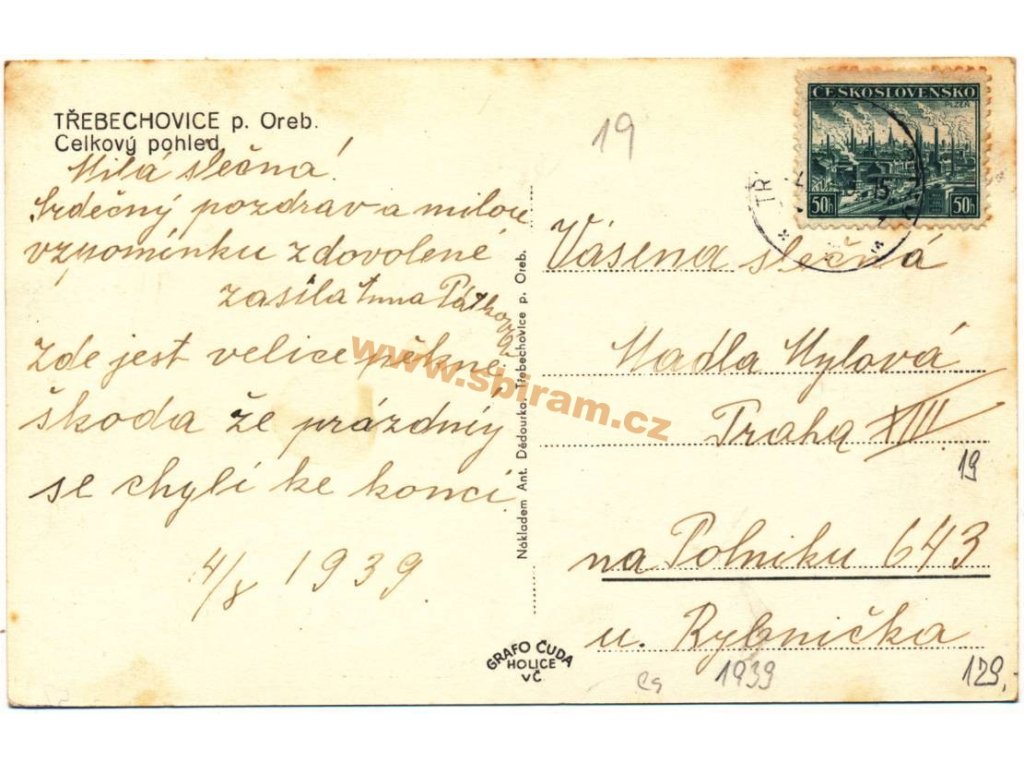 TŘEBECHOVICE p. Oreb.
Celkový pohled
Milá slečna!
Srdečný pozdrav a milou
vzpomínku z dovolené
zasíla Anna
Zde jest velice pěkně.
škoda že prázdniny
se chylí ke konci.
4/8 1939
Nákladem Ant. Dědourka, Třebechovice p. Oreb.
GRAFO ČUDA
HOLICE
VČ.
19
ČESKOSLOVENSKO
PLZEŇ
50h 50h
Vásena slečná
Madla Mylová
Praha XIII
19
na Polniku 643
u. Rybnička
1939
129,-
www.sbiram.cz